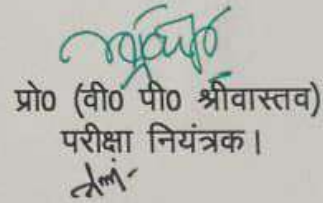 प्रो0 (वी0 पी0 श्रीवास्तव)
परीक्षा नियंत्रक।